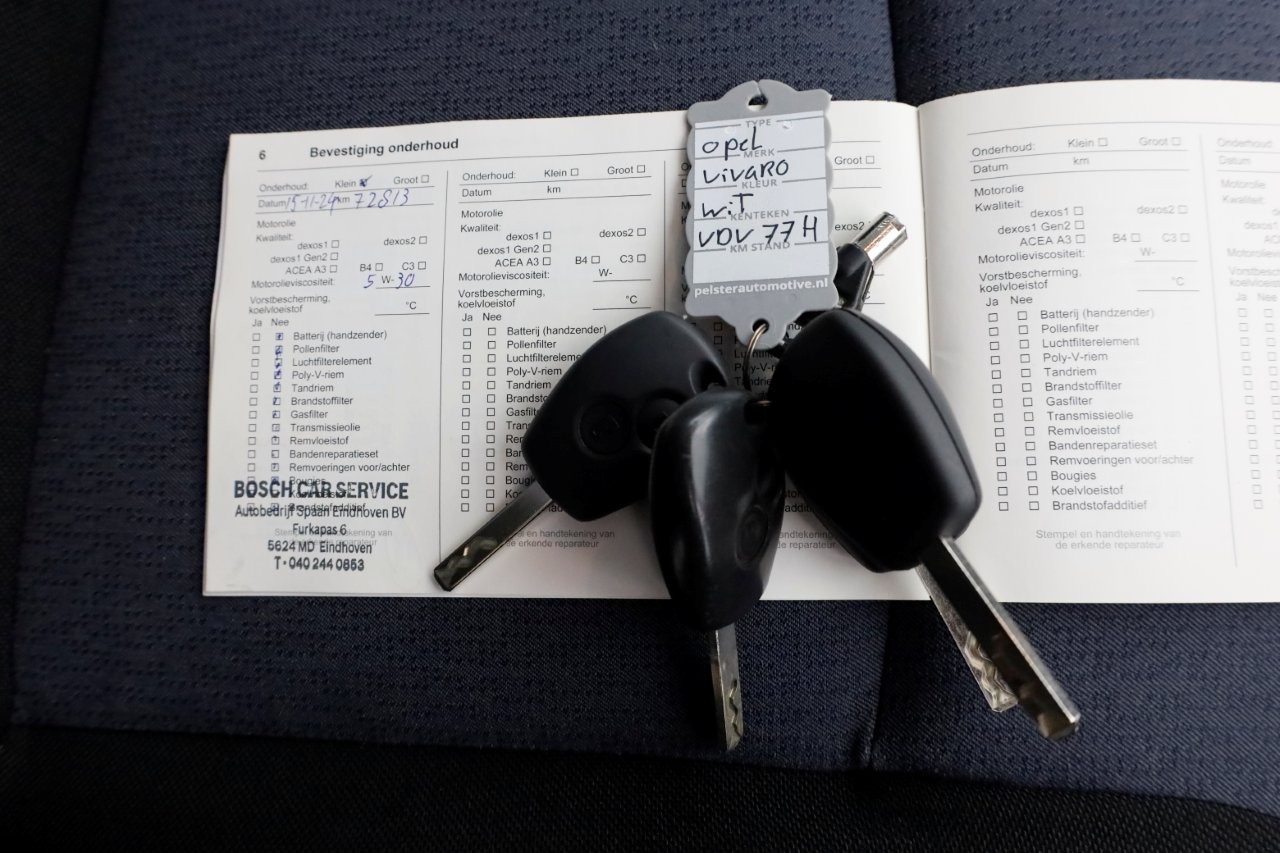 6 Bevestiging onderhoud
Onderhoud: Klein Groot
Datum 15-11-24 km 72813
Motorolie
Kwaliteit:
dexos1 dexos2
dexos1 Gen2
ACEA A3 B4 C3
Motorolieviscositeit: 5 W- 30
Vorstbescherming,
koelvloeistof °C
Ja Nee
Batterij (handzender)
Pollenfilter
Luchtfilterelement
Poly-V-riem
Tandriem
Brandstoffilter
Gasfilter
Transmissieolie
Remvloeistof
Bandenreparatieset
Remvoeringen voor/achter
Bougies
BOSCH CAR SERVICE
Autobedrijf Spaan Eindhoven BV
Furkapas 6
5624 MD Eindhoven
T·040 244 0853
Stempel en handtekening van
de erkende reparateur
Onderhoud: Klein Groot
Datum km
Motorolie
Kwaliteit:
dexos1 dexos2
dexos1 Gen2
ACEA A3 B4 C3
Motorolieviscositeit: W-
Vorstbescherming,
koelvloeistof °C
Ja Nee
Batterij (handzender)
Pollenfilter
Poly-V-riem
Tandriem
de erkende reparateur
TYPE
opel
MERK
vivaRO
KLEUR
wiT
KENTEKEN
VDV 77 H
KM STAND
pelsterautomotive.nl
Groot
dexos2
Onderhoud: Klein Groot
Datum km
Motorolie
Kwaliteit:
dexos1 dexos2
dexos1 Gen2
ACEA A3 B4 C3
Motorolieviscositeit: W-
Vorstbescherming,
koelvloeistof °C
Ja Nee
Batterij (handzender)
Pollenfilter
Luchtfilterelement
Poly-V-riem
Tandriem
Brandstoffilter
Gasfilter
Transmissieolie
Remvloeistof
Bandenreparatieset
Remvoeringen voor/achter
Bougies
Koelvloeistof
Brandstofadditief
Stempel en handtekening van
de erkende reparateur
Onderhoud:
Datum
Motorolie
Kwaliteit: